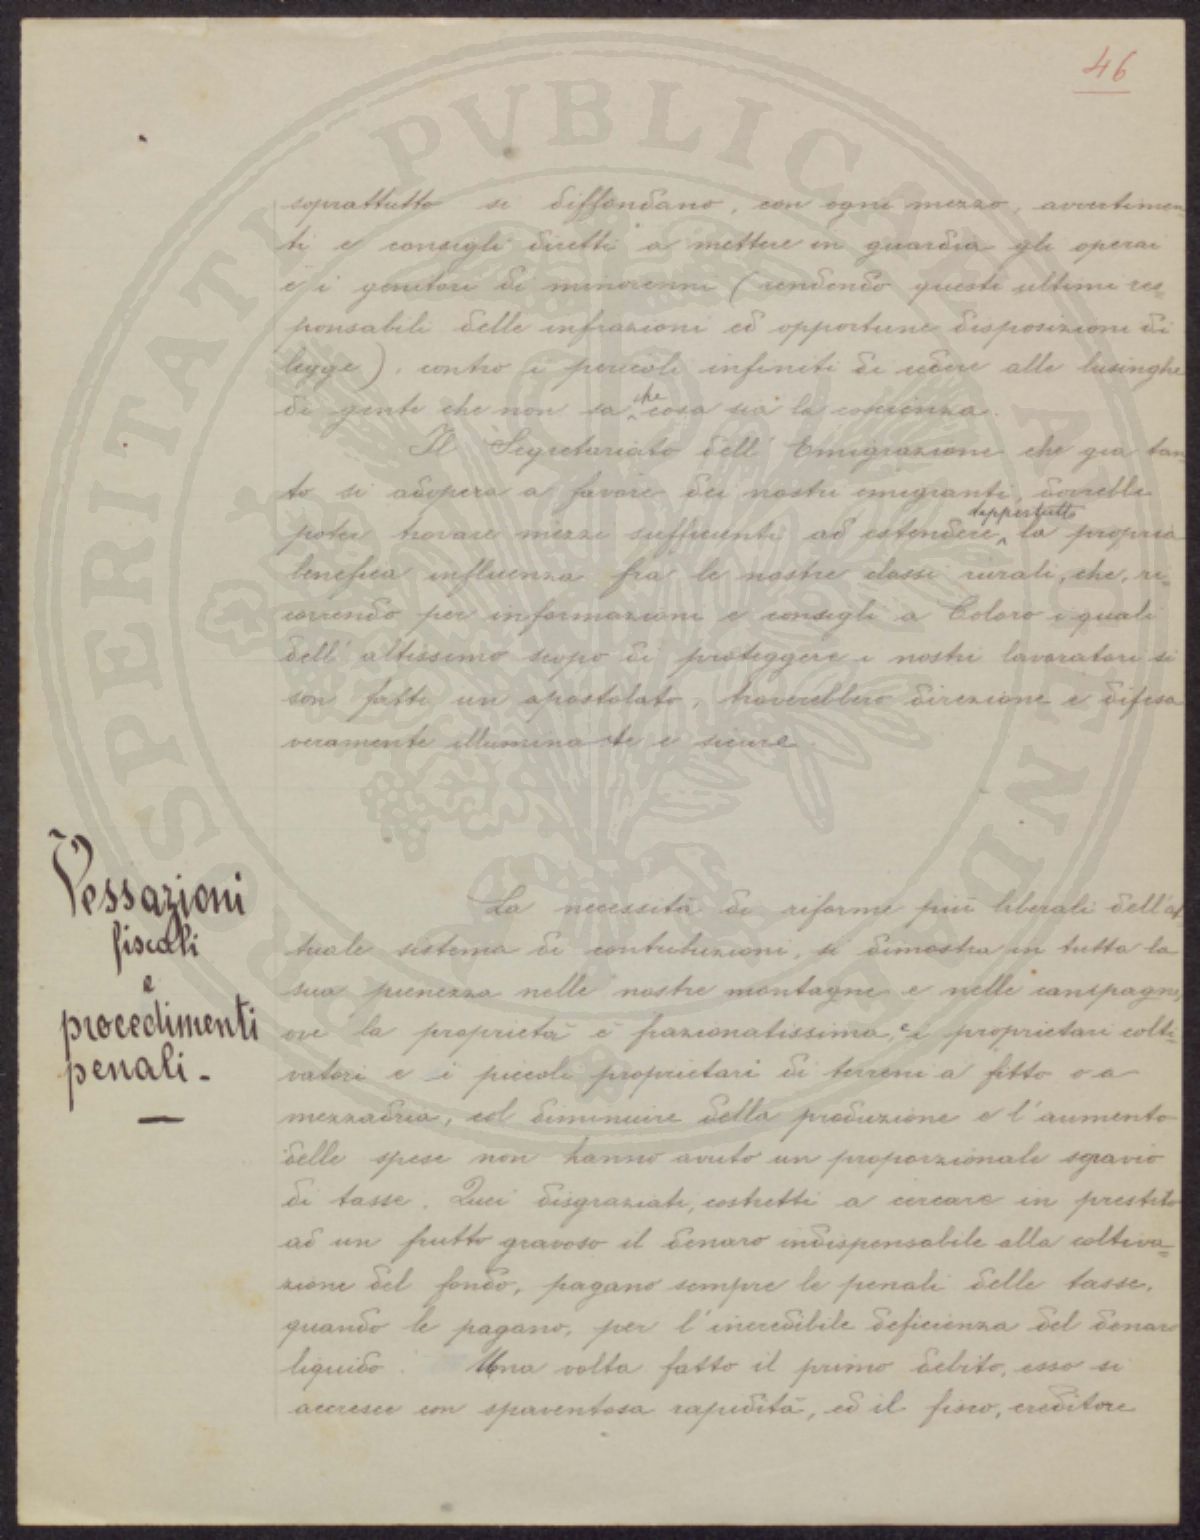 46
soprattutto si diffondano, con ogni mezzo, avvertimen-
ti e consigli diretti a mettere in guardia gli operai
e i genitori di minorenni (rendendo questi ultimi res-
ponsabili delle infrazioni ed opportune disposizioni di
legge), contro i pericoli infiniti di cedere alle lusinghe
di gente che non sa che cosa sia la coscienza.
Il Segretariato dell'Emigrazione che già tan-
to si adopera a favore dei nostri emigranti, dovrebbe
poter trovare mezzi sufficienti ad estendere dappertutto la propria
benefica influenza fra le nostre classi rurali, che, ri-
correndo per informazioni e consigli a Coloro i quali
dell'altissimo scopo di proteggere i nostri lavoratori si
son fatti un apostolato, troverebbero direzione e difesa
veramente illuminate e sicure.
Vessazioni
fiscali
e
procedimenti
penali.-
La necessità di riforme più liberali dell'at-
tuale sistema di contribuzioni, si dimostra in tutta la
sua pienezza nelle nostre montagne e nelle campagne,
ove la proprietà è frazionatissima, e i proprietari colti-
vatori e i piccoli proprietari di terreni a fitto o a
mezzadria, col diminuire della produzione e l'aumento
delle spese non hanno avuto un proporzionale sgravio
di tasse. Quei disgraziati, costretti a cercare in prestito
ad un frutto gravoso il denaro indispensabile alla coltiva-
zione del fondo, pagano sempre le penali delle tasse,
quando le pagano, per l'incredibile deficienza del denaro
liquido. Una volta fatto il primo debito, esso si
accresce con spaventosa rapidità, ed il fisco, creditore
PROSPERITATI PVBLICAE AVGENDAE